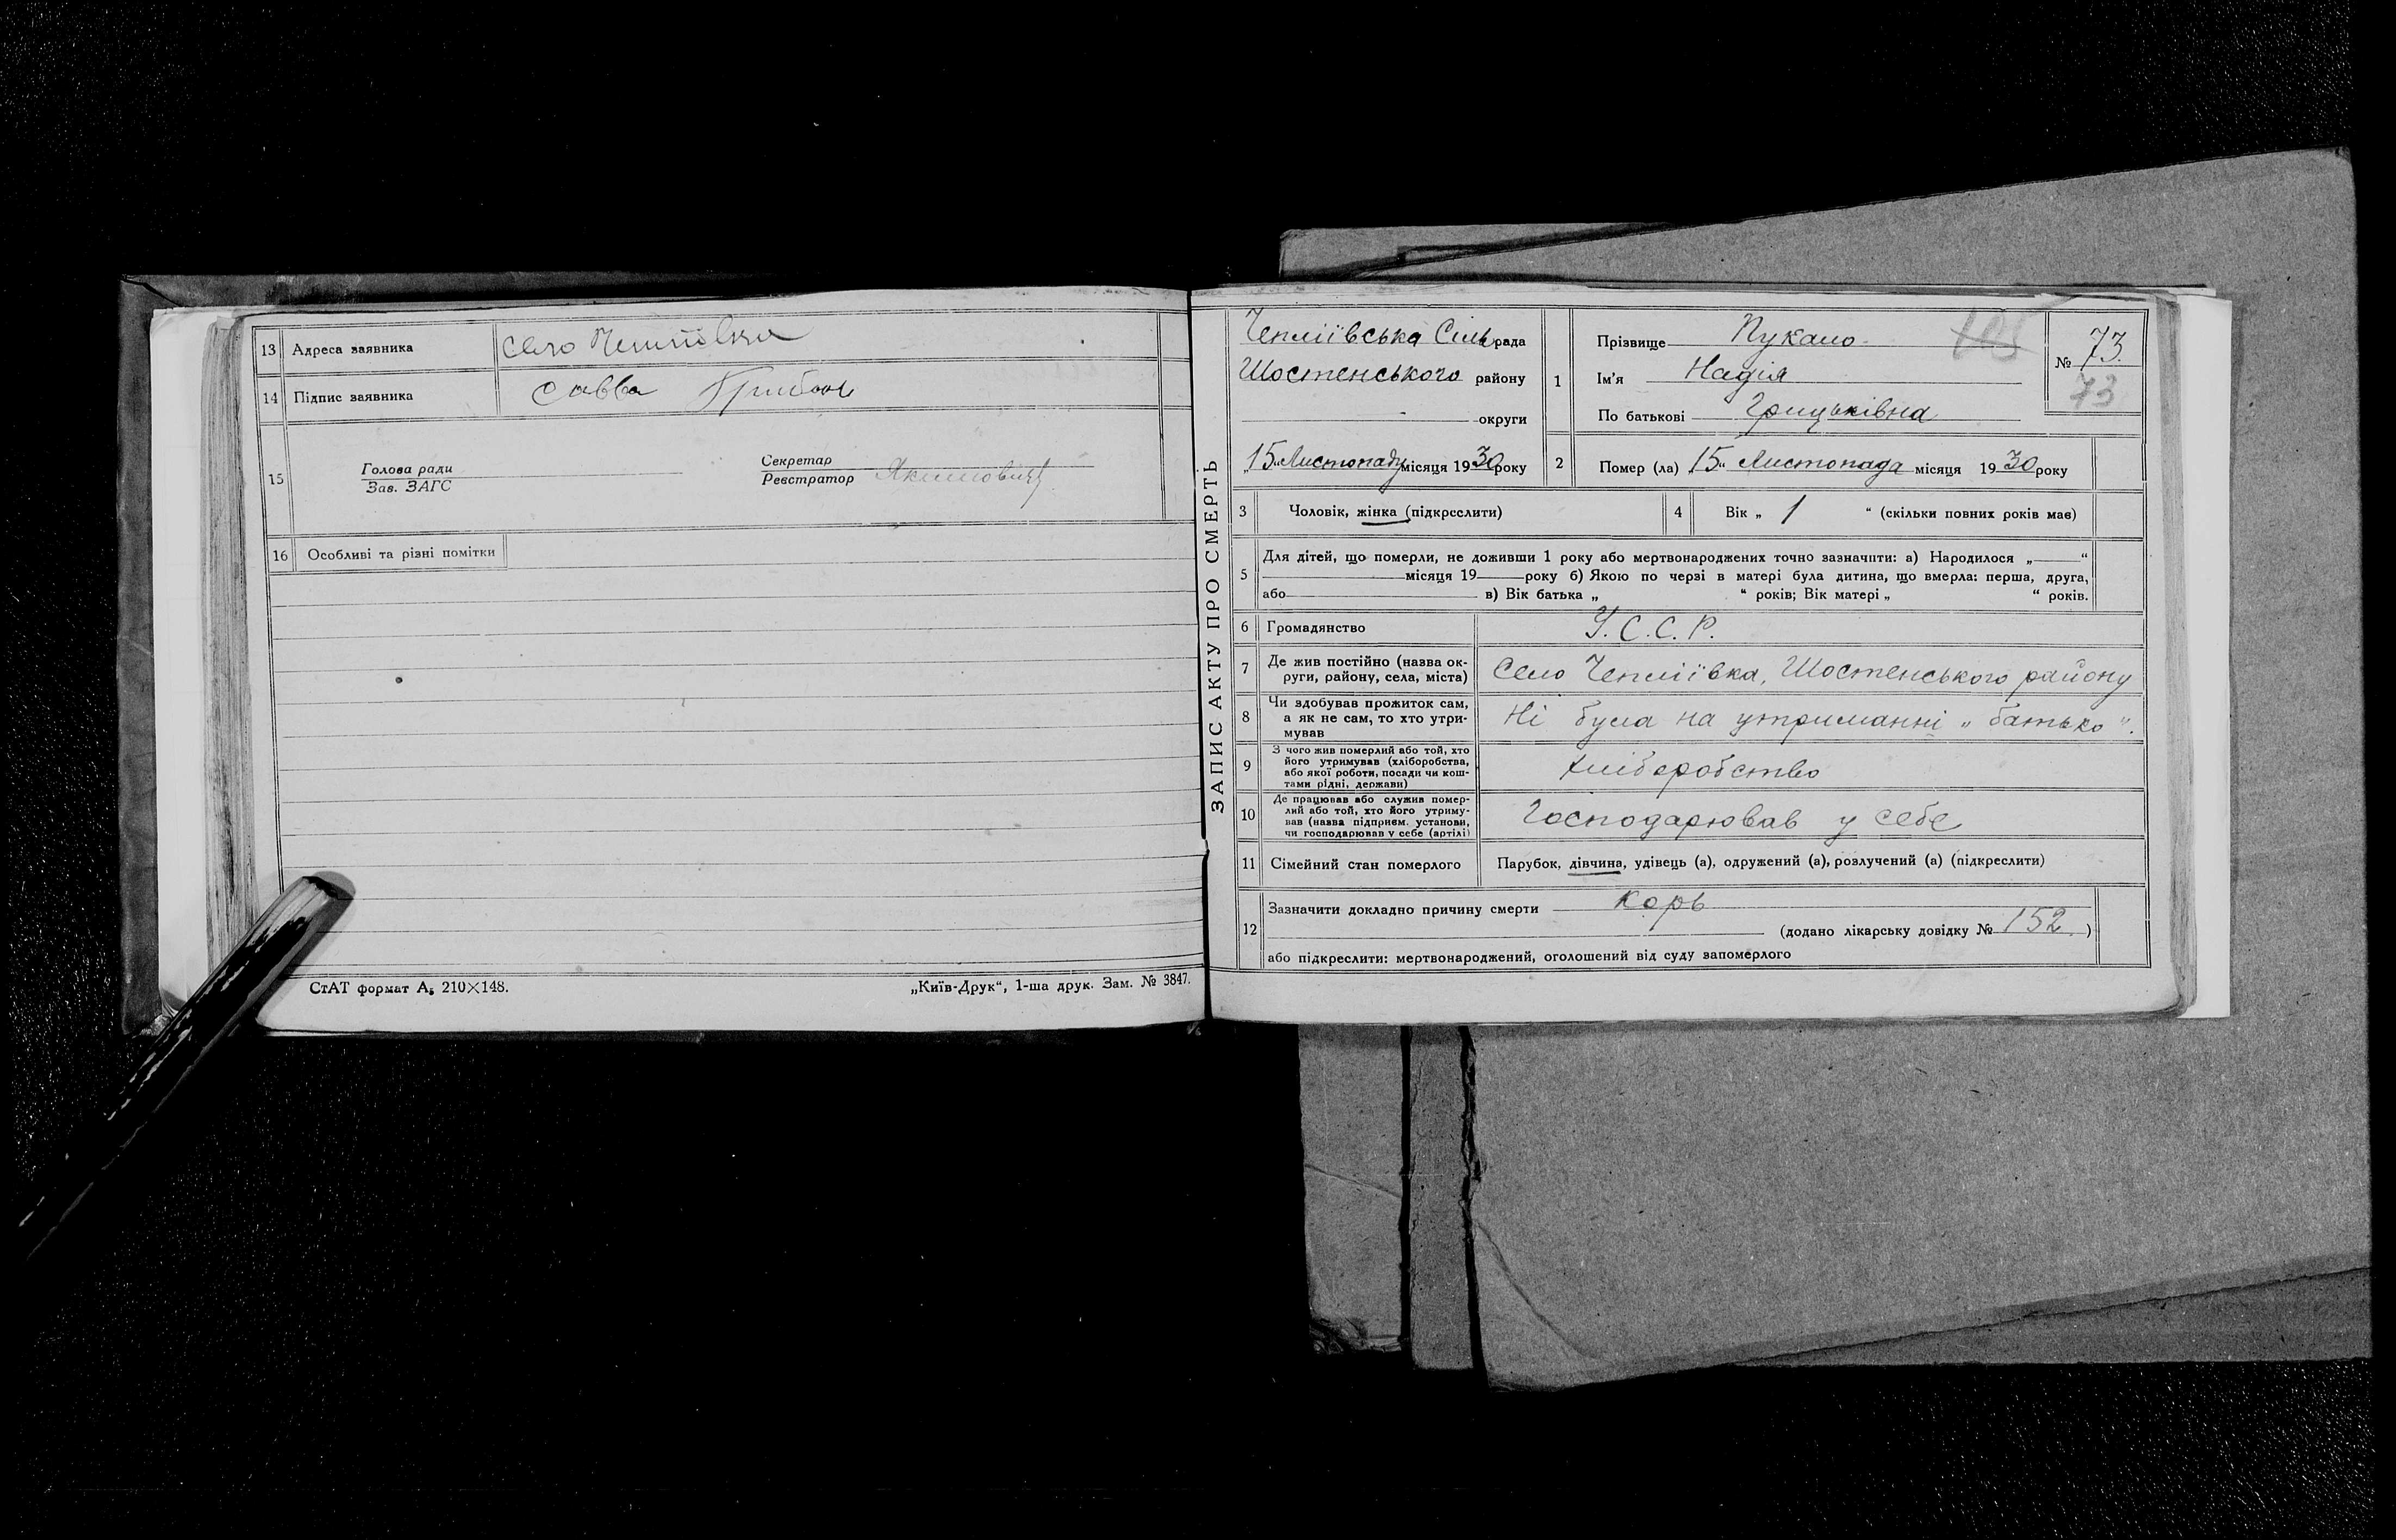 13 Адреса заявника село
14 Підпис заявника Савва
15 Голова ради
Зав. ЗАГС
Секретар
Реєстратор
16 Особливі та різні помітки
СтАТ формат А₅ 210×148.
„Київ-Друк“, 1-ша друк. Зам. № 3847.
ЗАПИС АКТУ ПРО СМЕРТЬ
Чепліївська Сільрада
Шостенського району
округи
„15„ Листопаду місяця 1930 року
1 Прізвище
Ім'я Надія
По батькові Грицьківна
№ 73.
73
2 Помер (ла) 15“ Листопада місяця 1930 року
3 Чоловік, жінка (підкреслити)
4 Вік „ 1 “ (скільки повних років має)
5 Для дітей, що померли, не доживши 1 року або мертвонароджених точно зазначити: а) Народилося „ “
місяця 19 року б) Якою по черзі в матері була дитина, що вмерла: перша, друга,
або в) Вік батька „ “ років; Вік матері „ “ років.
6 Громадянство У.С.С.Р.
7 Де жив постійно (назва ок-
руги, району, села, міста) Село Чепліївка, Шостенського району
8 Чи здобував прожиток сам,
а як не сам, то хто утри-
мував Ні була на утриманні „батько“.
9 З чого жив померлий або той, хто
його утримував (хліборобства,
або якої роботи, посади чи кош-
тами рідні, держави) хліборобство
10 Де працював або служив помер-
лий або той, хто його утриму-
вав (назва підприєм. установи,
чи господарював у себе (артілі) Господарював у себе
11 Сімейний стан померлого Парубок, дівчина, удівець (а), одружений (а), розлучений (а) (підкреслити)
12 Зазначити докладно причину смерти корь
(додано лікарську довідку № 152.)
або підкреслити: мертвонароджений, оголошений від суду запомерлого